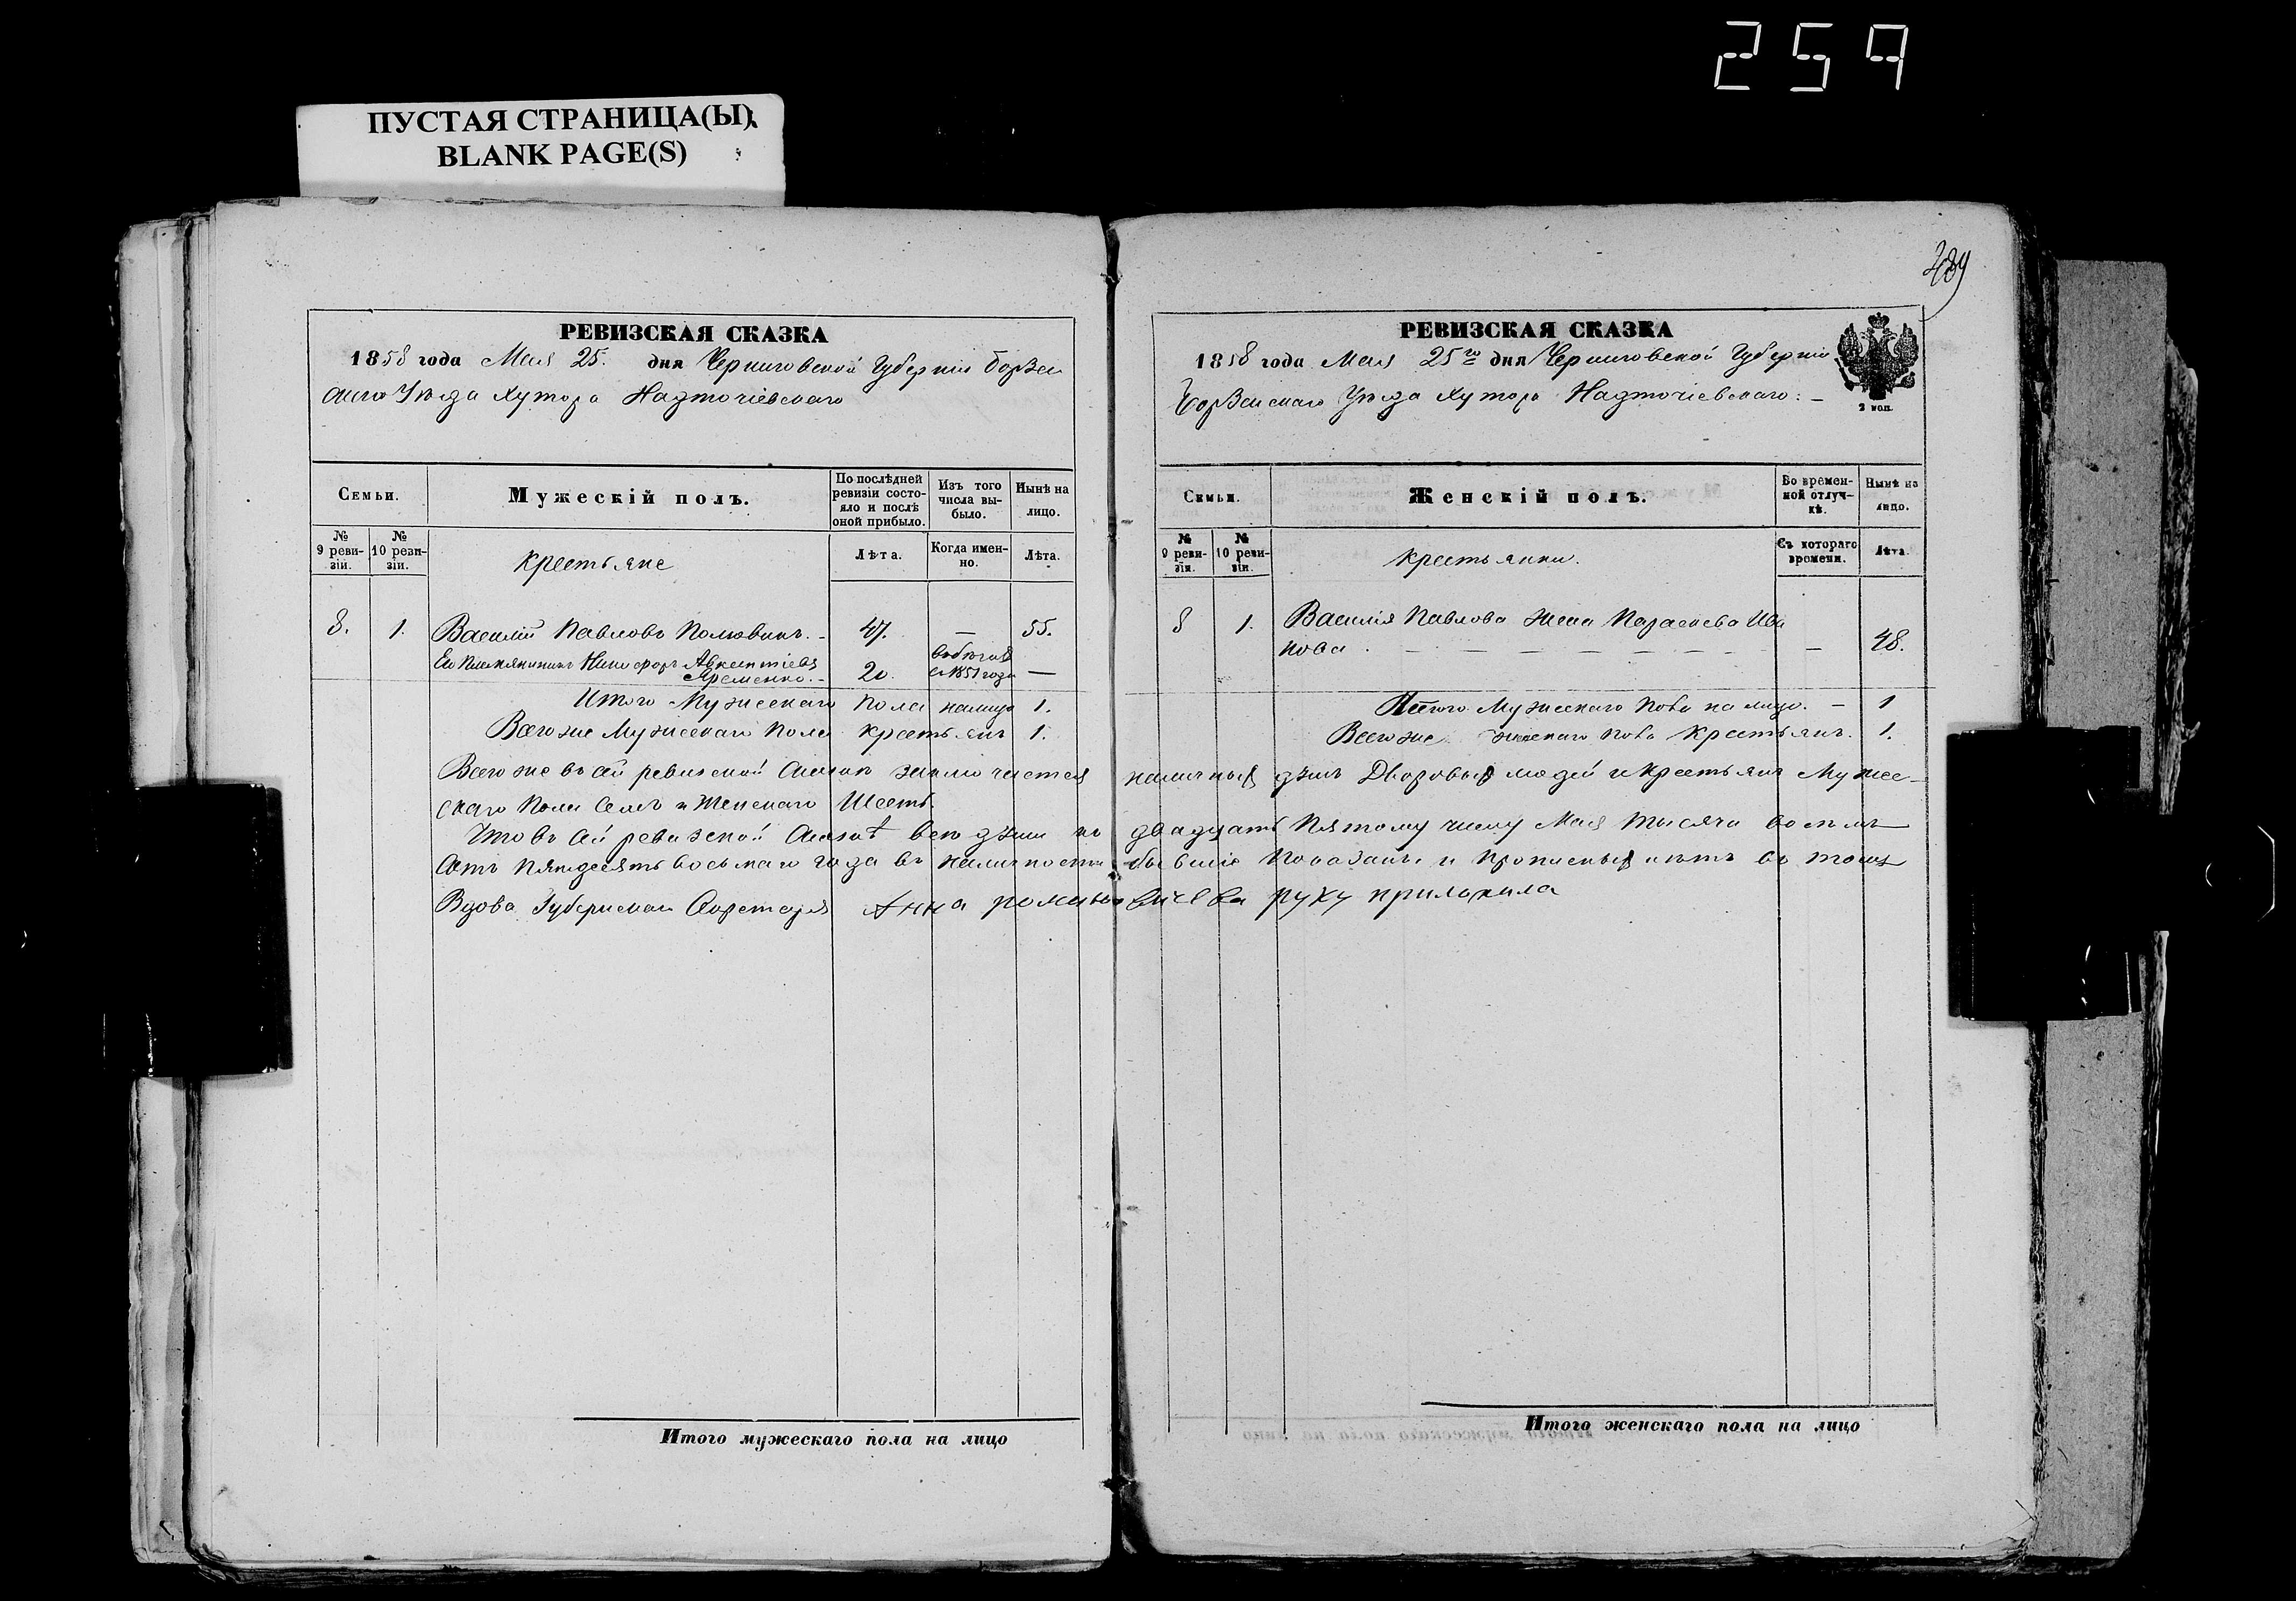 259
ПУСТАЯ СТРАНИЦА(Ы)
BLANK PAGE(S)
РЕВИЗСКАЯ СКАЗКА
1858 года Мая 25. дня Черниговской Губерніи Борзен
скаго Уѣзда Хутора Надточіевскаго
Семьи.
Мужескій полъ.
По послѣдней ревизіи состояло и послѣ оной прибыло.
Изъ того числа выбыло.
Нынѣ на лицо.
№ 9 ревизіи.
№ 10 ревизіи.
Крестьяне
Лѣта.
Когда именно.
Лѣта.
8. 1. Василій Павловъ 47. — 55.
Его племянникъ Никифоръ Авксентіевъ
Яременко. 20. въ бѣгахъ съ 1851 года —
Итого Мужескаго пола налицо 1.
Всего же Мужескаго пола крестьянъ 1.
РЕВИЗСКАЯ СКАЗКА
1858 года Мая 25го дня Черниговской Губерніи
Борзенскаго Уѣзда Хутора Надточіевскаго:
2 коп.
Семьи.
Женскій полъ.
Во временной отлучкѣ.
Нынѣ на лицо.
№ 9 ревизіи.
№ 10 ревизіи.
Крестьянки.
Съ котораго времени.
Лѣта.
8 1. Василія Павлова жена Параскева Ива
нова — 48.
Итого Мужескаго пола на лицо. — 1
Всего же женскаго пола Крестьянъ. 1.
Всего же въ сей ревизской сказкѣ заключается наличныхъ душъ Дворовыхъ людей и Крестьянъ Мужес-
скаго пола семь и Женскаго Шесть.
Что въ сей ревизской сказкѣ всѣ души по двадцать пятому числу Мая тысяча восемь
сотъ пятдесятъ восьмаго года въ наличности бывшіе показаны и прописныхъ нѣтъ въ томъ
Вдова Губернскаго Секретаря Анна руку приложила
Итого мужескаго пола на лицо
Итого женскаго пола на лицо